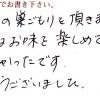 でお書き下さい。
の巣ごもりと頂きま
なお味を楽しめて
やかったです。
うございました。